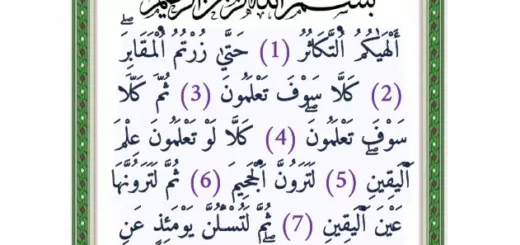 بسم الله الرحمن الرحيم
أَلْهَاكُمُ ٱلتَّكَاثُرُ (1) حَتَّىٰ زُرْتُمُ ٱلْمَقَابِرَ
(2) كَلَّا سَوْفَ تَعْلَمُونَ (3) ثُمَّ كَلَّا
سَوْفَ تَعْلَمُونَ (4) كَلَّا لَوْ تَعْلَمُونَ عِلْمَ
ٱلْيَقِينِ (5) لَتَرَوُنَّ ٱلْجَحِيمَ (6) ثُمَّ لَتَرَوُنَّهَا
عَيْنَ ٱلْيَقِينِ (7) ثُمَّ لَتُسْـَٔلُنَّ يَوْمَئِذٍ عَنِ